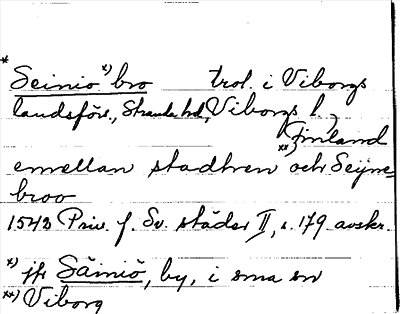 *
Seiniö *) bro trol. i Viborgs
landsförs., Stranda hd, Viborgs l.,
**) Finland
emellan stadhren och Seijne-
broo
1543 Priv. f. Sv. städer II, s. 179 avskr.
*) jfr Säiniö, by, i sma sn
**) Viborg